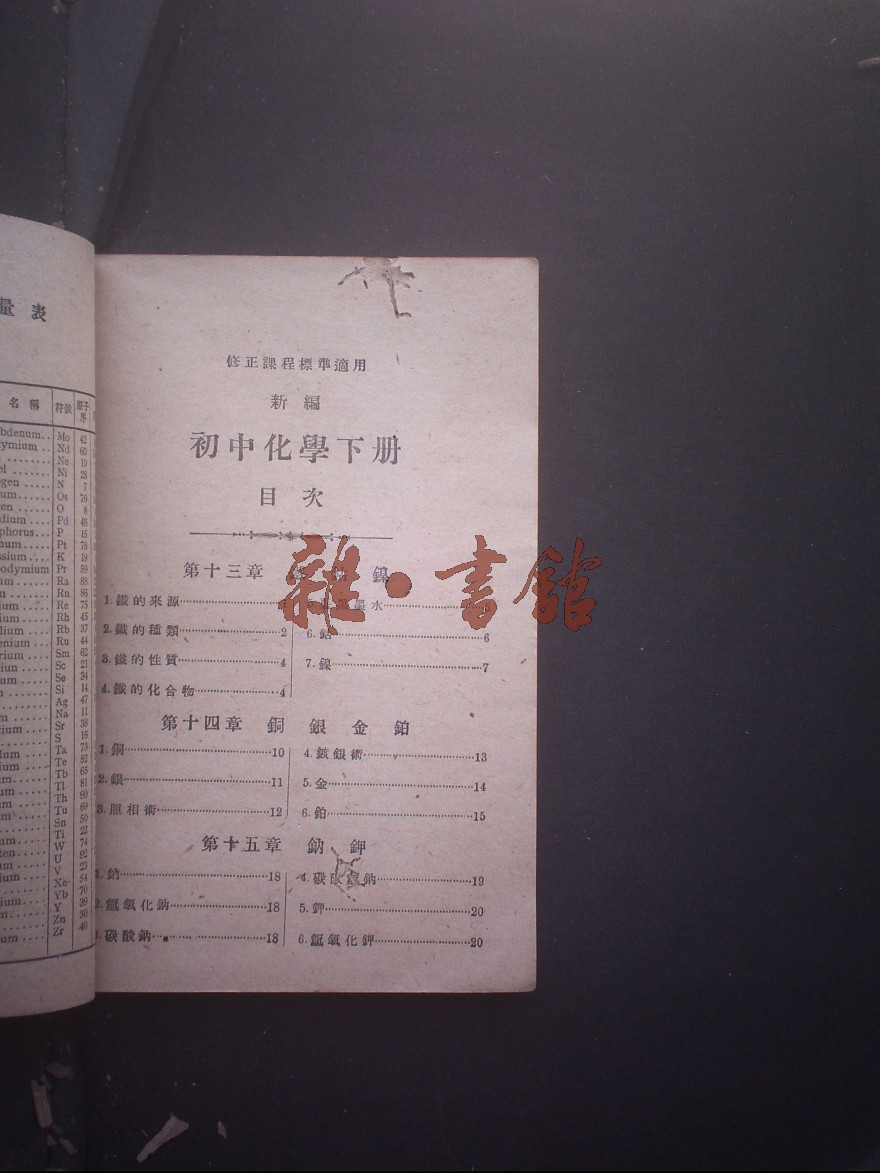 量表
名稱 符號 原子序
bdenum.. Mo 42
ymium .. Nd 60
Ne 10
el ....... Ni 28
ogen .... N 7
um..... Os 76
en ..... O 8
dium .... Pd 46
phorus... P 15
num..... Pt 78
ssium ... K 19
odymium Pr 59
um .... Ra 88
n ...... Rn 86
um .... Re 75
ium .... Rh 45
dium ... Rb 37
enium .. Ru 44
rium .... Sm 62
ium .... Sc 21
um ..... Se 34
Si 14
Ag 47
Na 11
ium ... Sr 38
S 16
Ta 73
lum .... Te 52
um .... Tb 65
um .... Tl 81
um .... Th 90
um .... Tu 69
Sn 50
Ti 22
um .... W 74
ten..... U 92
um .... V 23
Xe 54
ium .... Yb 70
Y 39
Zn 30
um .... Zr 40
修正課程標準適用
新編
初中化學下册
目次
第十三章 鎳
1.鐵的來源
2.鐵的種類 2
3.鐵的性質 4
4.鐵的化合物 4
墨水
6.鈷 6
7.鎳 7
第十四章 銅 銀 金 鉑
1.銅 10
2.銀 11
3.照相術 12
4.鍍銀術 13
5.金 14
6.鉑 15
第十五章 鈉 鉀
1.鈉 18
2.氫氧化鈉 18
3.碳酸鈉 18
4.碳酸氫鈉 19
5.鉀 20
6.氫氧化鉀 20
雜·書館